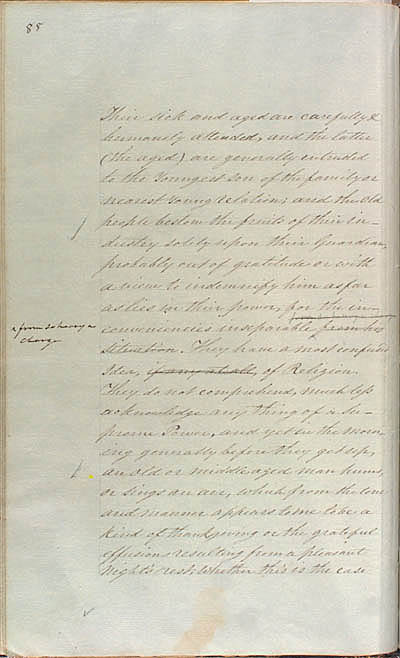 88
Their sick and aged are carefully &
humanely attended, and the latter
(the aged) are generally entrusted
to the Youngest Son of the family or
nearest Young relation; and the Old
people bestow the fruits of their in-
dustry solely upon their Guardian,
probably out of gratitude or with
a view to indemnify him as far
as lies in their power, for the in-
x from so heavy a
charge
conveniencies inseparable from his
Situation. They have a most confused
Idea, if any at all, of Religion.
They do not comprehend, much less
acknowledge any thing of a Su-
preme Power, and yet in the Morn-
ing generally before they get up,
an Old or middle aged man hums,
or Sings an air, which from the tone
and manner appears to me to be a
kind of thanksgiving or the grateful
effusions resulting from a pleasant
Night's rest; whether this is the case